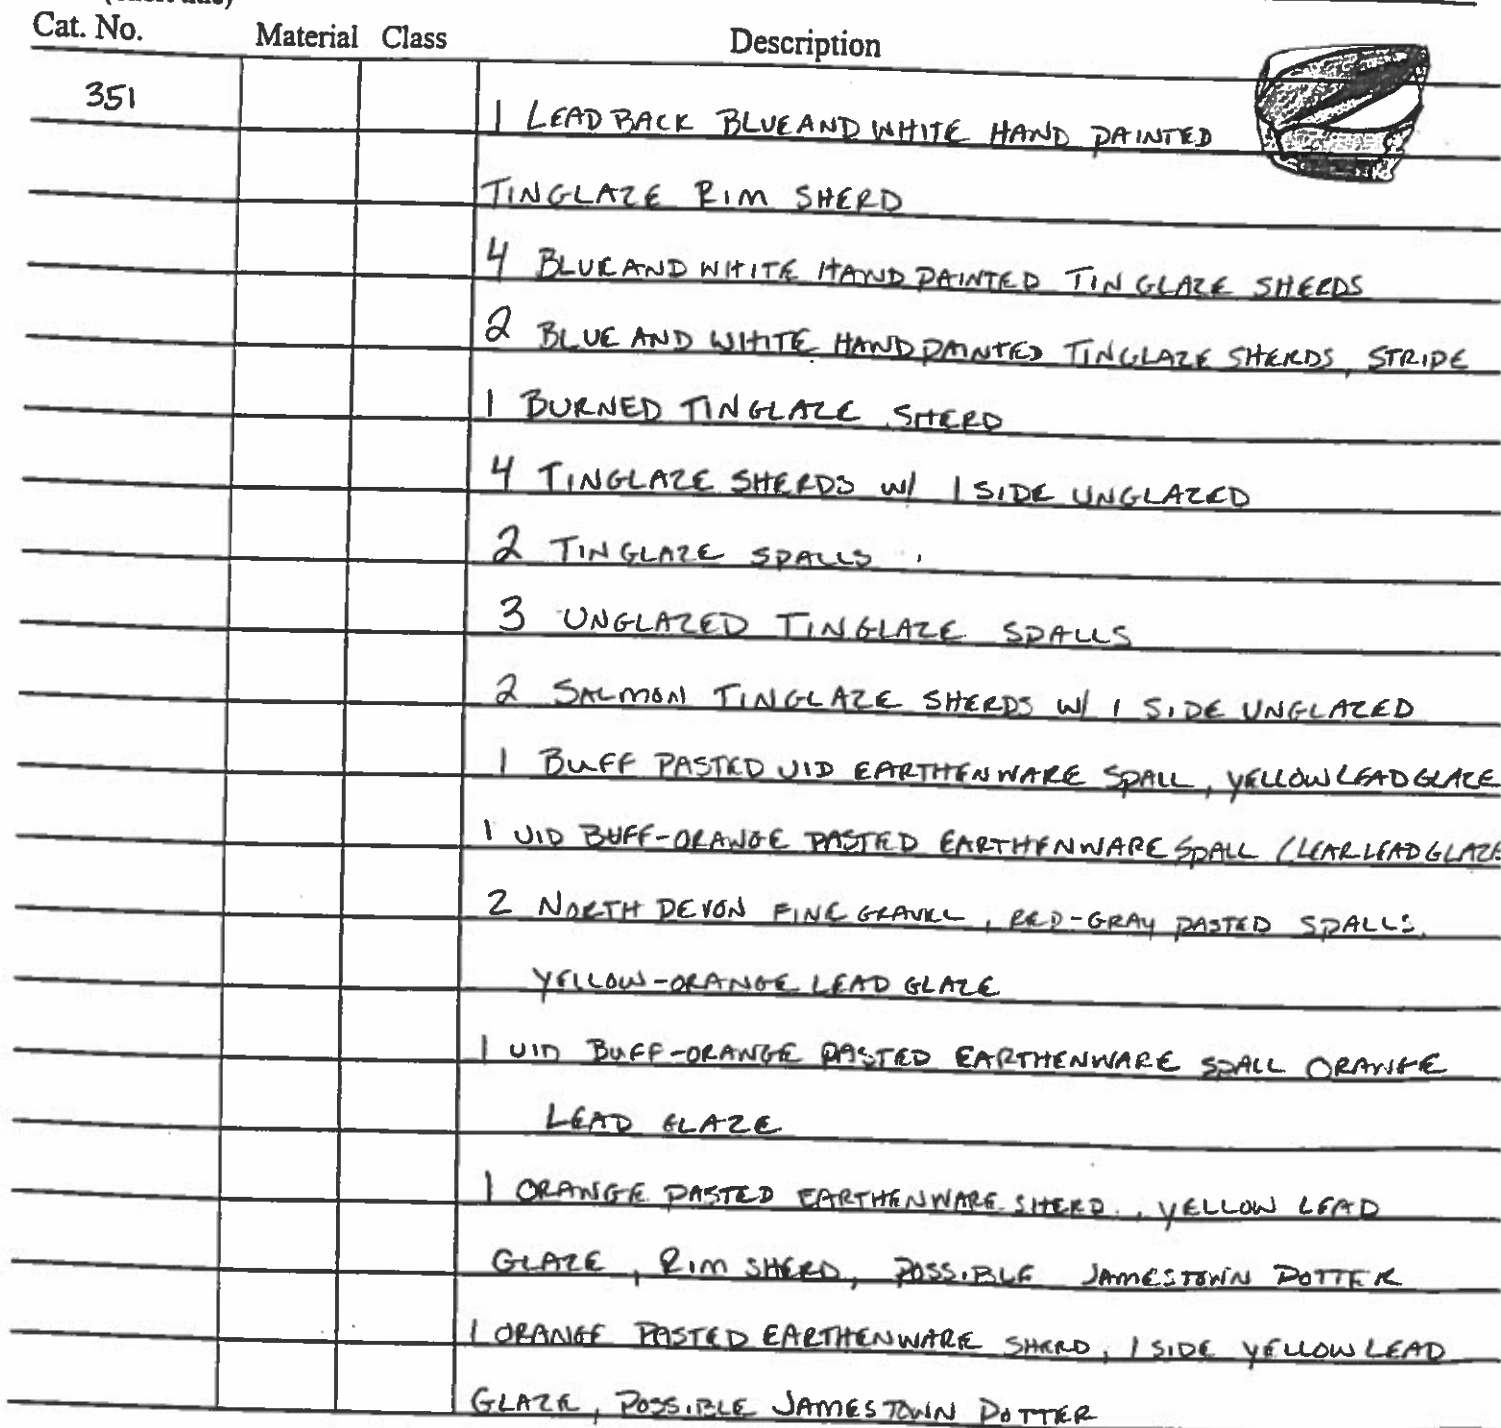 Cat. No. Material Class Description
351
1 LEAD BACK BLUE AND WHITE HAND PAINTED
TINGLAZE RIM SHERD
4 BLUE AND WHITE HAND PAINTED TIN GLAZE SHERDS
2 BLUE AND WHITE HAND PAINTED TINGLAZE SHERDS, STRIPE
1 BURNED TINGLAZE SHERD
4 TINGLAZE SHERDS W/ 1 SIDE UNGLAZED
2 TINGLAZE SPALLS
3 UNGLAZED TINGLAZE SPALLS
2 SALMON TINGLAZE SHERDS W/ 1 SIDE UNGLAZED
1 BUFF PASTED UID EARTHENWARE SPALL, YELLOW LEAD GLAZE
1 UID BUFF-ORANGE PASTED EARTHENWARE SPALL CLEAR LEAD GLAZE
2 NORTH DEVON FINE GRAVEL, RED-GRAY PASTED SPALLS,
YELLOW-ORANGE LEAD GLAZE
1 UID BUFF-ORANGE PASTED EARTHENWARE SPALL ORANGE
LEAD GLAZE
1 ORANGE PASTED EARTHENWARE SHERD, YELLOW LEAD
GLAZE, RIM SHERD, POSSIBLE JAMESTOWN POTTER
1 ORANGE PASTED EARTHENWARE SHERD, 1 SIDE YELLOW LEAD
GLAZE, POSSIBLE JAMESTOWN POTTER